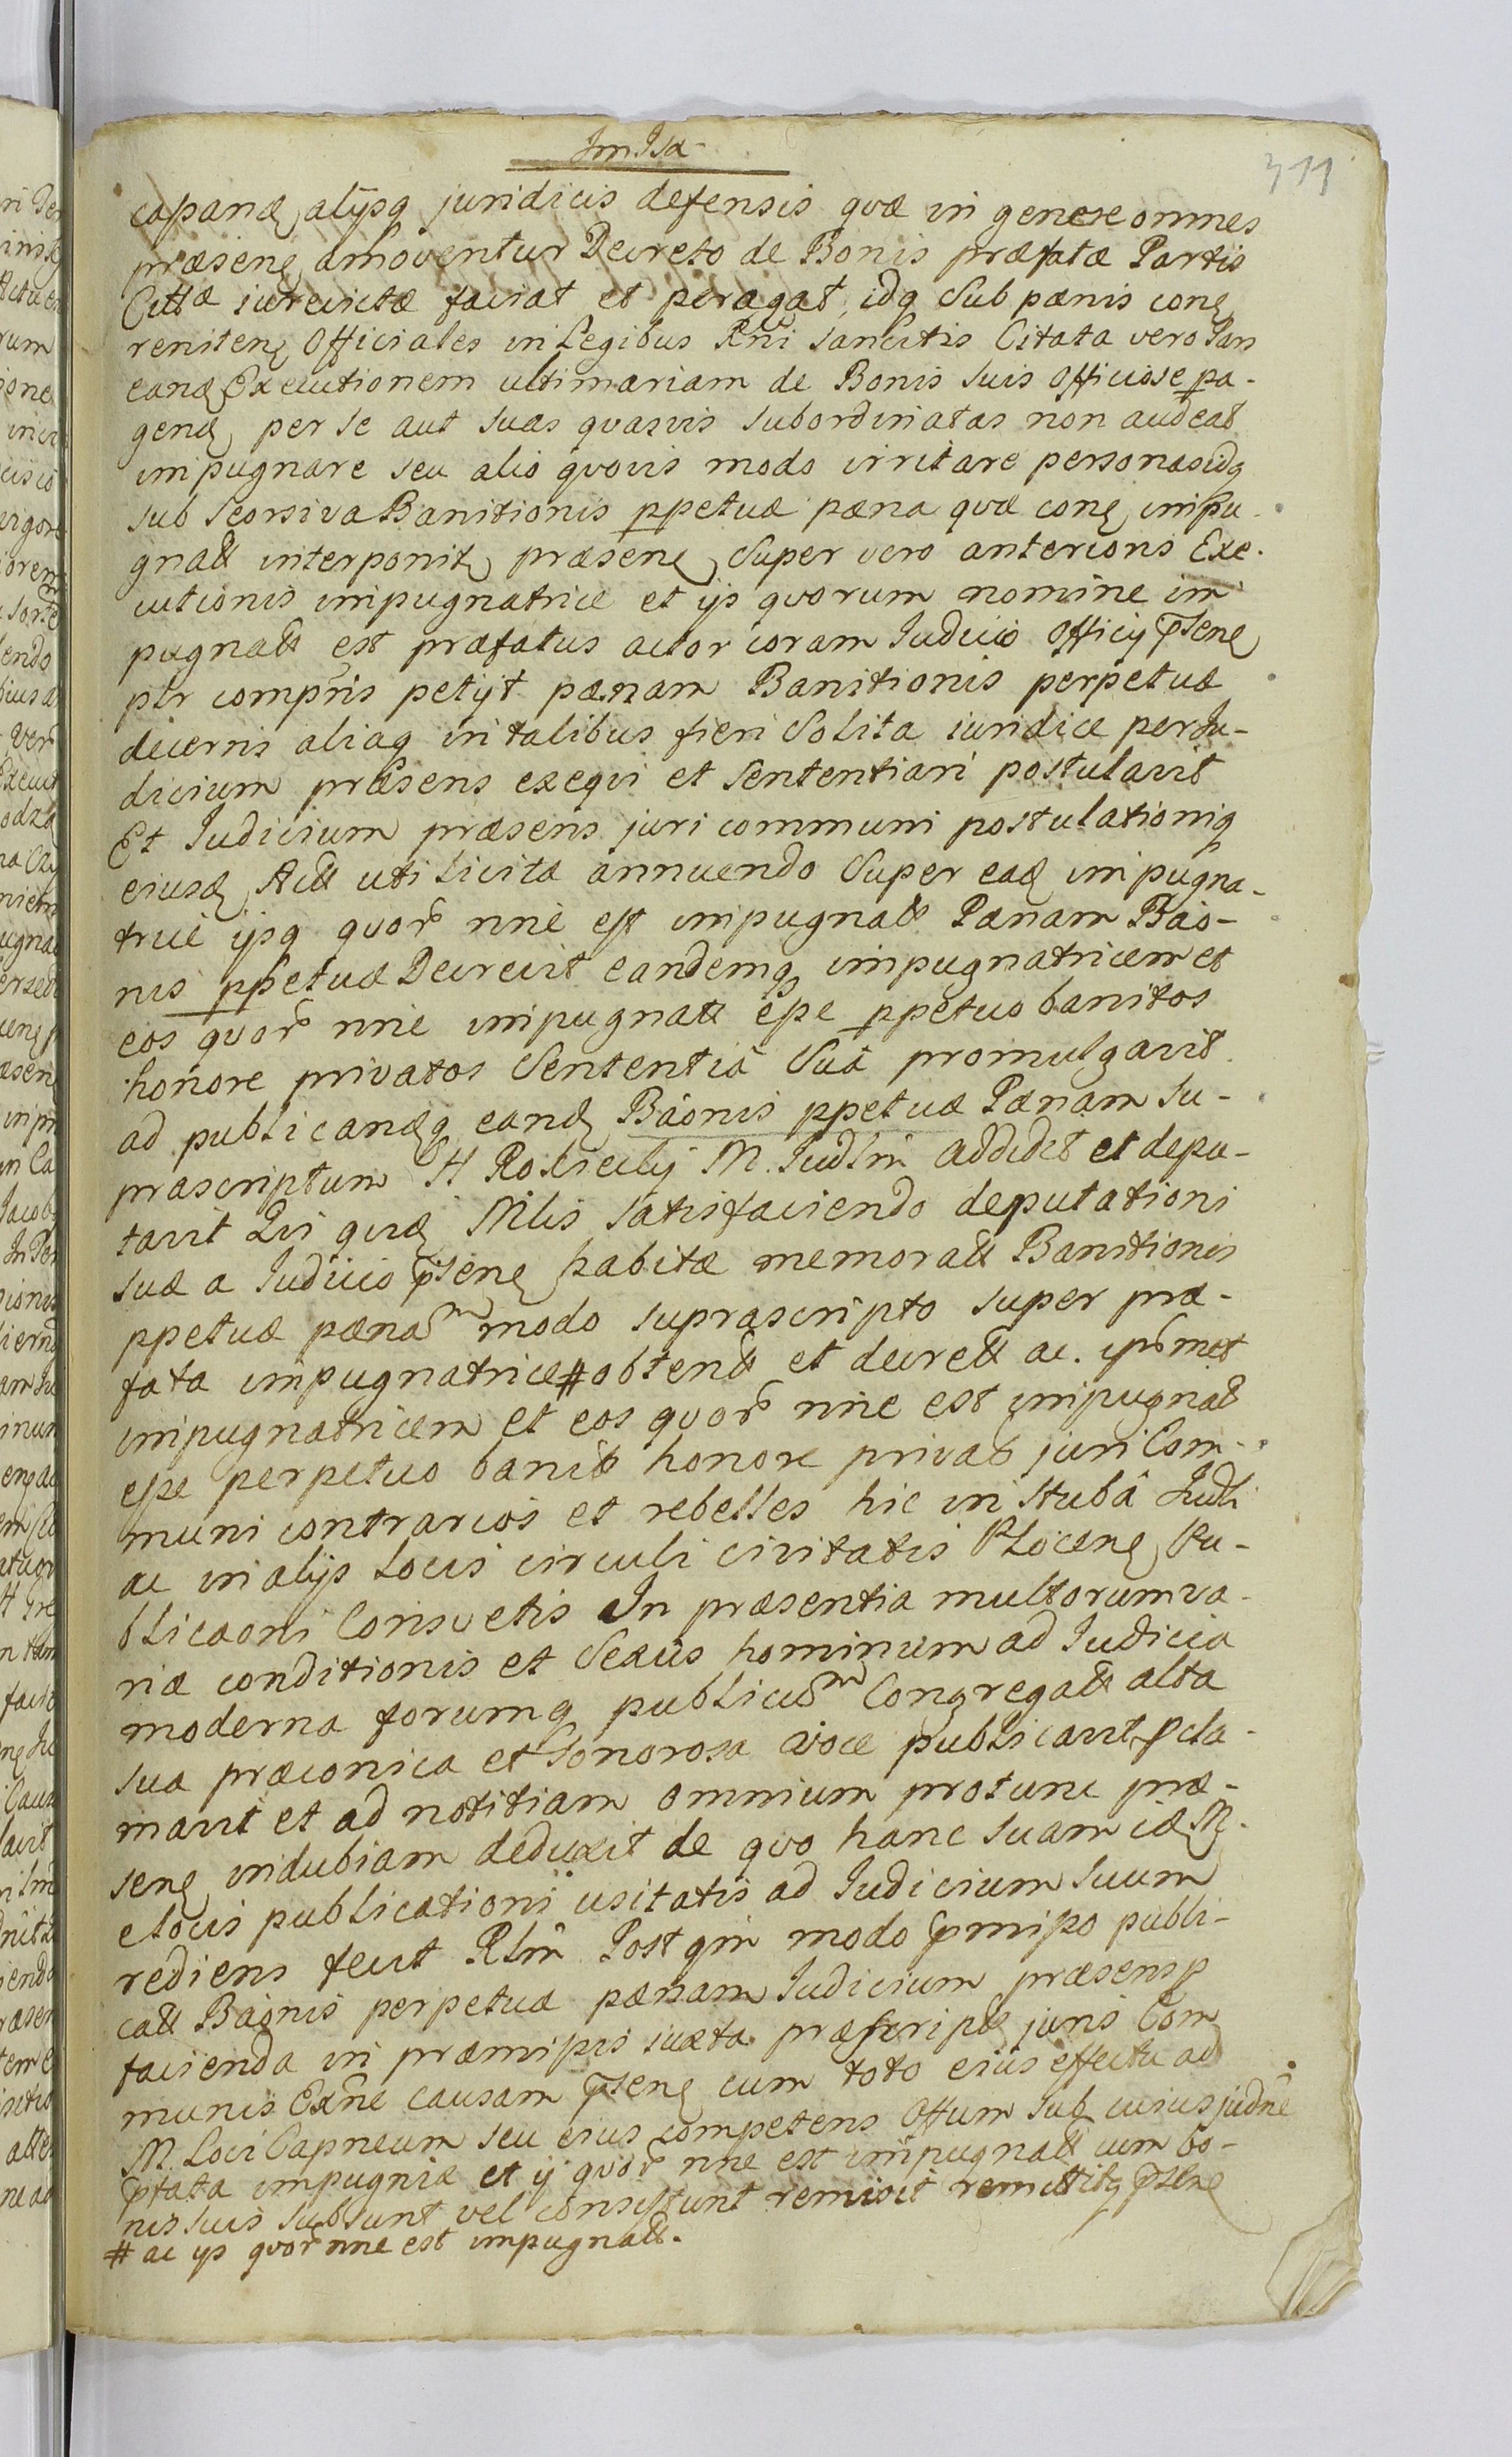 311
capanæ alijsq juridicis defensis qvæ in genere omnes
præsene amoventur Decreto de Bonis præfatæ Partis
Cittæ iurevictæ faciat et peragat, idq sub pænis conς
renitenς Officiales in Legibus Rñi sancitis Citata vero Pars
eandς Executionem ultimariam de Bonis suis officiose pa-
gendς per se aut suas qvasvis subordinatas non audeat
impugnare seu alio qvovis modo irritare personas idq
sub seorsiva Banitionis ppetuæ pæna qvæ conς impu-
gnatt interponitς præsenς super vero anterioris Exe-
cutionis impugnatrice et ijs qvorum nomine im
pugnatt est præfatus actor coram Iudicio Officij pñsenς
plr comprñs petijt pænam Banitionis perpetuæ
decernis aliaq in talibus fieri solita iuridice per Iu-
dicium præsens exeqvi et sententiari postulavit
Et Iudicium præsens juri communi postulationiq
eiusdς Actt uti licitæ annuendo super eadς impugna-
trice ijsq qvor nñe est impugnatt Pænam Bâo-
nis ppetuæ Decrevit eandemq impugnatricem et
eos qvor nñe impugnatt esse ppetuo banitos
honore privatos sententiâ suâ promulgavit
ad publicandςq eandς Bâonis ppetuæ Pænam su-
prascriptum H Roxicily M. Iudlm addidit et depu-
tavit Qvi qvidς Mlis satisfaciendo deputationi
suæ a Iudicio pñsenς habitæ memoratt Banitionis
ppetuæ pænam modo suprascripto super præ-
fata impugnatrice # obtentt et decrett ac. ipsmet
impugnatricem et eos qvor nñe est impugnat
esse perpetuo banitt honore privat juri Com-
muni contrarios et rebelles hic in Stubâ Iudli
ac in alijs Locis circuli civitatis Plocenς Pu-
blicaoni Consvetis In præsentia multorum va-
riæ conditionis et Sexûs hominum ad Iudicia
moderna forumq publicum Congregatt alta
sua præconica et sonorosa voce publicavit pcla-
mavit et ad notitiam omnium protunc præ-
senς indubiam deduxit de qvo hanc suam idς M.
e locis publicationi usitatis ad Iudicium suum
rediens fecit Rlm Post qm modo pmisso publi-
catt Bâonis perpetuæ pænam Iudicium præsens p
facienda in præmissis iuxta præscript juris Com
munis Exñe causam pñsenς cum toto eius effectu ad
M. Loci Capneum seu eius competens Offum sub cuius judñe
pfata impugnîæ et ij qvor nñe est impugnatt cum bo-
nis suis subsunt vel consistunt remisit remittitς pñsenς
# ac ijs qvor nñe est impugnatt.